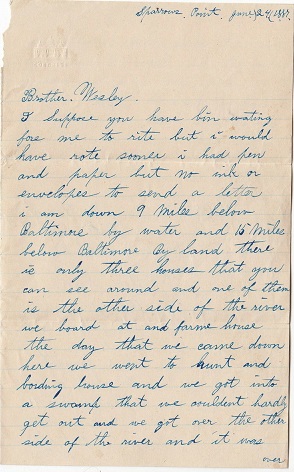 Sparrows Point, June 24 1887.
Brother, Wesley.
I suppose you have bin wating
fore me to rite but i would
have rote sooner i had pen
and paper but no ink or
envelopes to send a letter
i am down 9 Miles below
Baltimore by water and 15 Miles
below Baltimore by land there
is only three houses that you
can see around and one of them
is the other side of the river
we board at and farme house
the day that we came down
here we went to hunt and
bording house and we got into
a swamp that we couldent hardly
get out and we got over the other
side of the river and it was
over